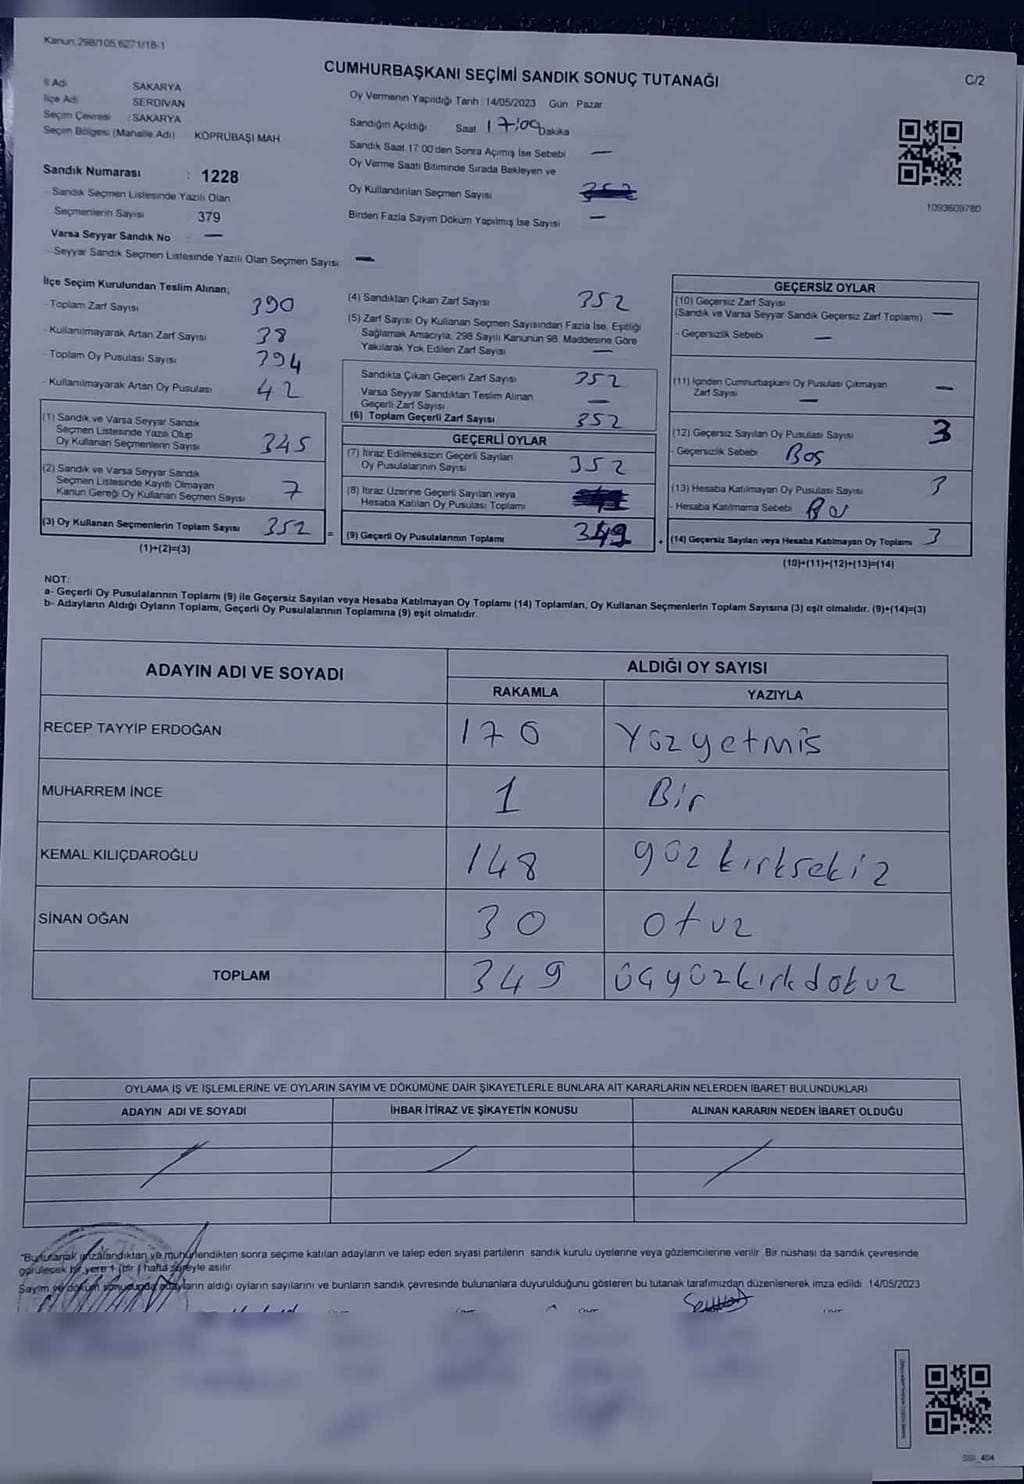 Kanun,298/105,6271/18-1
CUMHURBAŞKANI SEÇİMİ SANDIK SONUÇ TUTANAĞI
C/2
İl Adı : SAKARYA
İlçe Adı : SERDİVAN
Seçim Çevresi : SAKARYA
Seçim Bölgesi (Mahalle Adı) KÖPRÜBAŞI MAH
Sandık Numarası : 1228
- Sandık Seçmen Listesinde Yazılı Olan
Seçmenlerin Sayısı 379
Varsa Seyyar Sandık No —
- Seyyar Sandık Seçmen Listesinde Yazılı Olan Seçmen Sayısı —
Oy Vermenin Yapıldığı Tarih 14/05/2023 Gün Pazar
Sandığın Açıldığı Saat 17:09 Dakika
Sandık Saat 17:00'den Sonra Açımış İse Sebebi —
Oy Verme Saati Bitiminde Sırada Bekleyen ve
Oy Kullandırılan Seçmen Sayısı
Birden Fazla Sayım Döküm Yapılmış İse Sayısı —
1093609780
İlçe Seçim Kurulundan Teslim Alınan;
- Toplam Zarf Sayısı 390
- Kullanılmayarak Artan Zarf Sayısı 38
- Toplam Oy Pusulası Sayısı 394
- Kullanılmayarak Artan Oy Pusulası 42
(1) Sandık ve Varsa Seyyar Sandık
Seçmen Listesinde Yazılı Olup
Oy Kullanan Seçmenlerin Sayısı 345
(2) Sandık ve Varsa Seyyar Sandık
Seçmen Listesinde Kayıtlı Olmayan
Kanun Gereği Oy Kullanan Seçmen Sayısı 7
(3) Oy Kullanan Seçmenlerin Toplam Sayısı 352 =
(1)+(2)=(3)
(4) Sandıktan Çıkan Zarf Sayısı 352
(5) Zarf Sayısı Oy Kullanan Seçmen Sayısından Fazla İse, Eşitliği
Sağlamak Amacıyla, 298 Sayılı Kanunun 98. Maddesine Göre
Yakılarak Yok Edilen Zarf Sayısı —
Sandıkta Çıkan Geçerli Zarf Sayısı 352
Varsa Seyyar Sandıktan Teslim Alınan
Geçerli Zarf Sayısı —
(6) Toplam Geçerli Zarf Sayısı 352
GEÇERLİ OYLAR
(7) İtiraz Edilmeksizin Geçerli Sayılan
Oy Pusulalarının Sayısı 352
(8) İtiraz Üzerine Geçerli Sayılan veya
Hesaba Katılan Oy Pusulası Toplamı
(9) Geçerli Oy Pusulalarının Toplamı 349 +
GEÇERSİZ OYLAR
(10) Geçersiz Zarf Sayısı
(Sandık ve Varsa Seyyar Sandık Geçersiz Zarf Toplamı) —
- Geçersizlik Sebebi —
(11) İçinden Cumhurbaşkanı Oy Pusulası Çıkmayan
Zarf Sayısı — —
(12) Geçersiz Sayılan Oy Pusulası Sayısı 3
- Geçersizlik Sebebi Boş
(13) Hesaba Katılmayan Oy Pusulası Sayısı 3
- Hesaba Katılmama Sebebi
(14) Geçersiz Sayılan veya Hesaba Katılmayan Oy Toplamı 3
(10)+(11)+(12)+(13)=(14)
NOT:
a- Geçerli Oy Pusulalarının Toplamı (9) ile Geçersiz Sayılan veya Hesaba Katılmayan Oy Toplamı (14) Toplamları, Oy Kullanan Seçmenlerin Toplam Sayısına (3) eşit olmalıdır. (9)+(14)=(3)
b- Adayların Aldığı Oyların Toplamı, Geçerli Oy Pusulalarının Toplamına (9) eşit olmalıdır.
ADAYIN ADI VE SOYADI
ALDIĞI OY SAYISI
RAKAMLA YAZIYLA
RECEP TAYYİP ERDOĞAN 170 Yüzyetmis
MUHARREM İNCE 1 Bir
KEMAL KILIÇDAROĞLU 148 yüzkırksekiz
SİNAN OĞAN 30 otuz
TOPLAM 349 üçyüzkırkdokuz
OYLAMA İŞ VE İŞLEMLERİNE VE OYLARIN SAYIM VE DÖKÜMÜNE DAİR ŞİKAYETLERLE BUNLARA AİT KARARLARIN NELERDEN İBARET BULUNDUKLARI
ADAYIN ADI VE SOYADI İHBAR İTİRAZ VE ŞİKAYETİN KONUSU ALINAN KARARIN NEDEN İBARET OLDUĞU
*Bu tutanak imzalandıktan ve mühürlendikten sonra seçime katılan adayların ve talep eden siyasi partilerin sandık kurulu üyelerine veya gözlemcilerine verilir. Bir nüshası da sandık çevresinde
görülecek bir yere 1 (bir) hafta süreyle asılır.
Sayım ve döküm sonucunda adayların aldığı oyların sayılarını ve bunların sandık çevresinde bulunanlara duyurulduğunu gösteren bu tutanak tarafımızdan düzenlenerek imza edildi. 14/05/2023